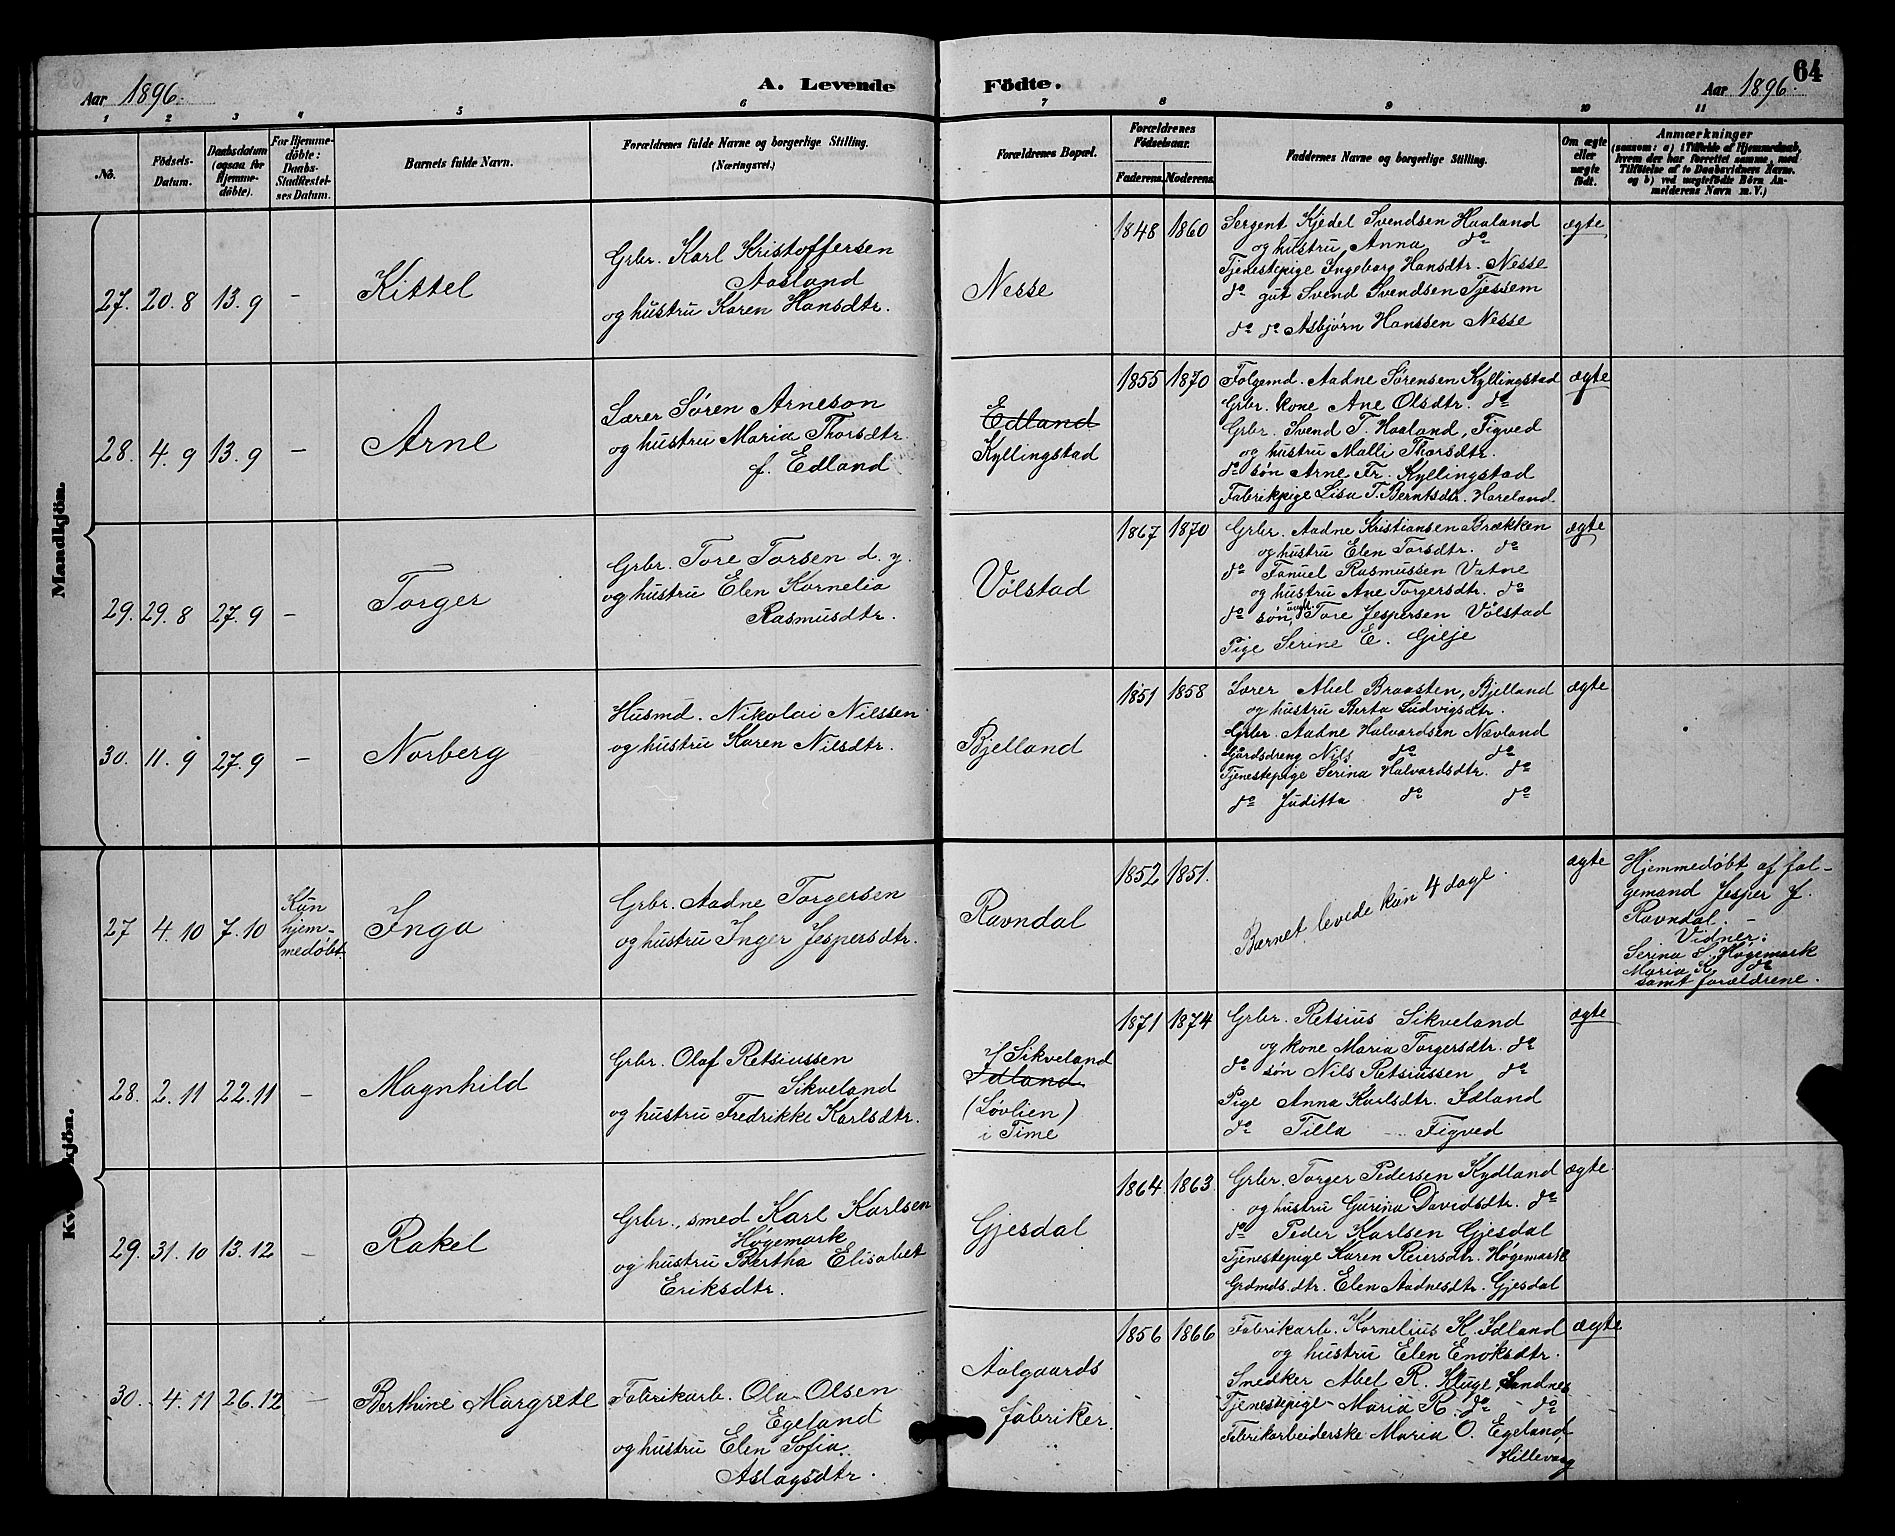 64
Aar 1896.
A. Levende Födte.
Aar 1896.
1 2 3 4 5 6 7 8 9 10 11
No.
Födsels-
Datum.
Daabsdatum
(ogsaa for
Hjemme-
döbte).
For Hjemme-
döbte:
Daabs-
Stadfæstel-
ses Datum.
Barnets fulde Navn.
Forældrenes fulde Navne og borgerlige Stilling.
(Næringsvei.)
Forældrenes Bopæl.
Forældrenes
Födselsaar.
Faderens. Moderens.
Faddernes Navne og borgerlige Stilling.
Om ægte
eller
uægte
födt.
Anmærkninger
(saasom: a) i Tilfælde af Hjemmedaab,
hvem der har forrettet samme, med
Tilföielse af to Daabsvidners Navne.
og b) ved uægtefödte Börn An-
melderens Navn m. V.)
Mandkjön.
27. 20.8 13.9 –
Kittel
Grbr. Karl Kristoffersen
Aasland
og hustru Karen Hansdtr.
Nesse
1848 1860
Sergent Kjedel Svendsen Haaland
og hustru Anna do
Tjenestepige Ingeborg Hansdtr. Nesse
do gut Svend Svendsen Tjessem
do do Asbjørn Hanssen Nesse
ægte
28. 4.9 13.9 –
Arne
Lærer Søren Arneson
og hustru Maria Thorsdtr.
f. Edland
Edland
Kyllingstad
1855 1870
Følgemd. Aadne Sørensen Kyllingstad
Grbr. kone Ane Olsdtr. do
Grbr. Svend T. Haaland, Figved
og hustru Malli Thorsdtr.
do søn Arne Fr. Kyllingstad
Fabrikpige Lisa T. Berntsdtr. Hareland.
ægte
29. 29.8 27.9 –
Torger
Grbr. Tore Torsen d. y.
og hustru Elen Kornelia
Rasmusdtr.
Vølstad
1867 1870
Grbr. Aadne Kristiansen Brækken
og hustru Elen Torsdtr. do
do Fanuel Rasmussen Vatne
og hustru Ane Torgersdtr. do
do søn, Tore Jespersen Vølstad
Pige Serine E. Gilje
ægte
30. 11.9 27.9 –
Norberg
Husmd. Nikolai Nilssen
og hustru Karen Nilsdtr.
Bjelland
1851 1858
Lærer Abel Braasten, Bjelland
og hustru Berta Ludvigsdtr.
Grbr. Aadne Halvardsen Nævland
Gårdsdreng Nils do do
Tjenestepige Serina Halvardsdtr. do
do Juditta do do
ægte
Kv kjön.
27 4.10 7.10
Kun
hjem-
medøbt
Inga
Grbr. Aadne Torgersen
og hustru Inger Jespersdtr.
Ravndal
1852 1851.
Barnet levede kun 4 dage.
ægte
Hjemmedøbt af føl-
gemand Jesper J.
Ravndal. –
Vidner:
Serina S. Høgemark
Maria K. do
samt forældrene.
28. 2.11 22.11 –
Magnhild
Grbr. Olaf Retsiussen
Sikveland
og hustru Fredrikke Karlsdtr.
Sikveland
Idland
(Løvlien)
i Time
1871 1874
Grbr. Retsius Sikveland
og kone Maria Torgersdtr. do
do søn Nils Retsiussen do
Pige Anna Karlsdtr. Idland
do Tilla – Figved
ægte
29. 31.10 13.12 –
Rakel
Grbr., smed Karl Karlsen
Høgemark
og hustru Bertha Elisabet
Eriksdtr.
Gjesdal
1864 1863
Grbr. Torger Pedersen Kydland
og hustru Gurina Davidsdtr. do
do Peder Karlsen Gjesdal
Tjenestepige Karen Reiersdtr. Høgemark
Grdmds. dtr. Elen Aadnesdtr. Gjesdal
ægte.
30. 4.11 26.12 –
Berthine Margrete
Fabrikarb. Ola Olsen
Egeland
og hustru Elen Sofia
Aslagsdtr.
Aalgaards
fabriker.
1856 1866
Fabrikarb. Kornelius K. Idland
og hustru Elen Enoksdtr.
Snedker Abel R. Kluge, Sandnes
Tjenestepige Maria R. do – do
Fabrikarbeiderske Maria O. Egeland,
Hillevaag
ægte